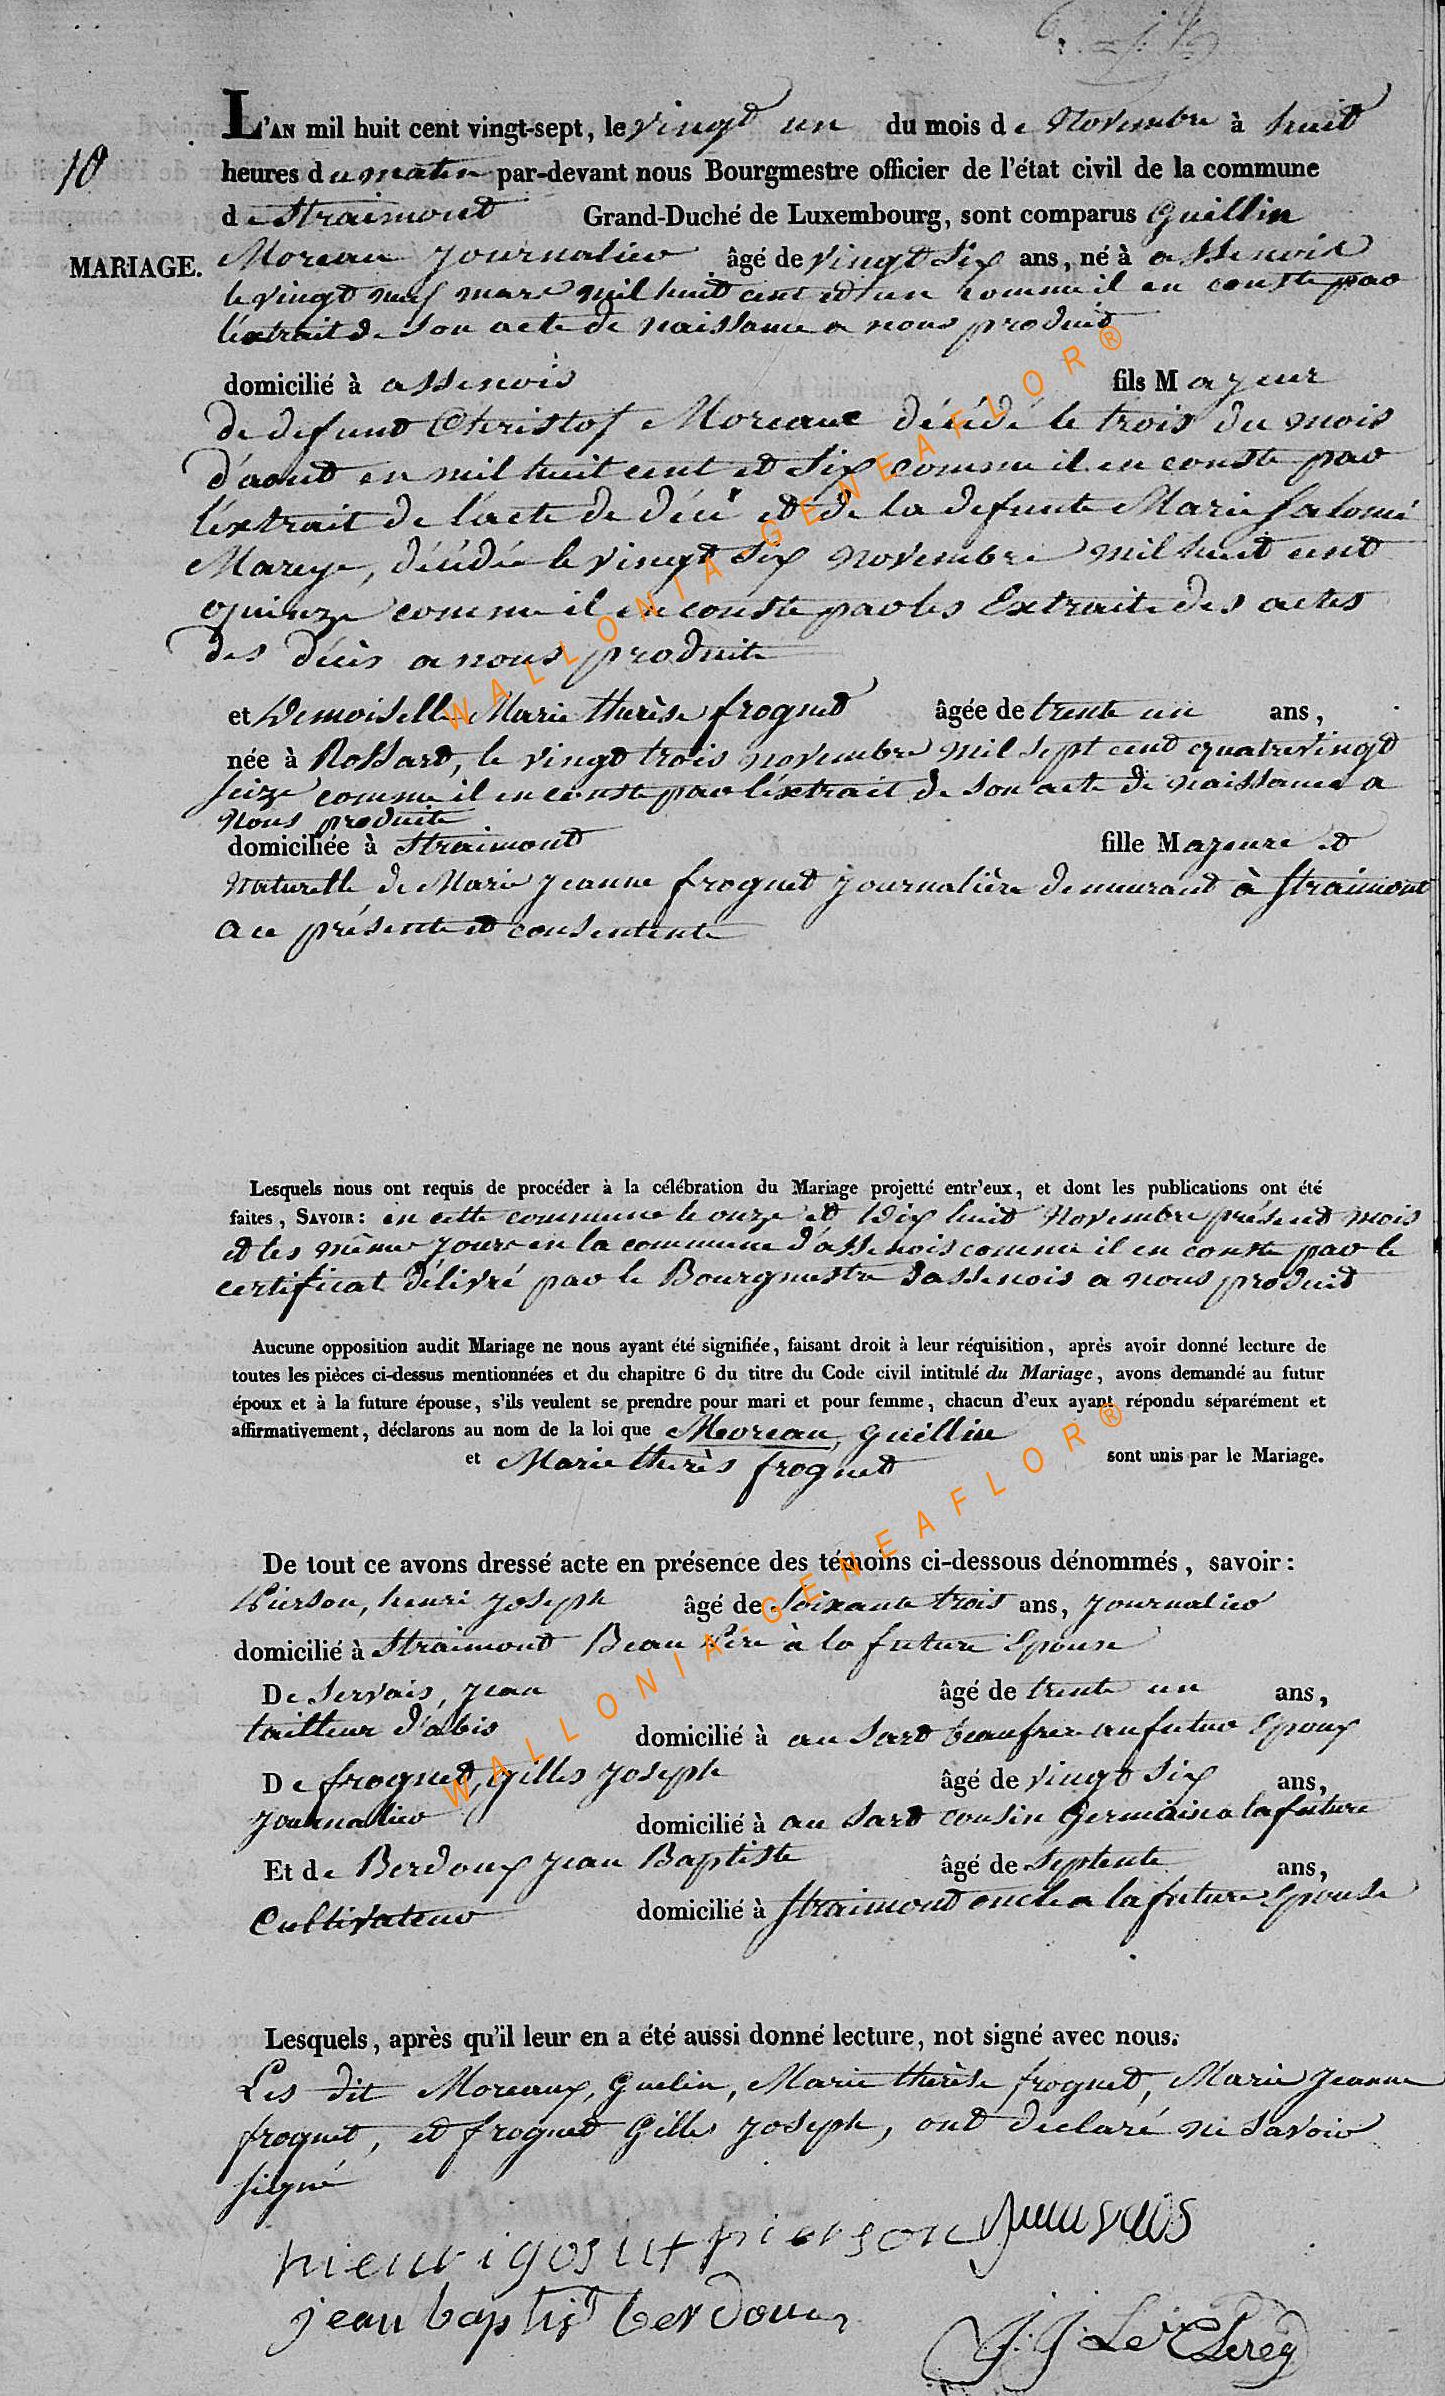 10
L'AN mil huit cent vingt-sept, le vingt un du mois de Novembre à huit
heures du matin par-devant nous Bourgmestre officier de l'état civil de la commune
de Straimont Grand-Duché de Luxembourg, sont comparus Guillin
MARIAGE.
Moreau journalier âgé de vingt Six ans, né à assenois
le vingt neuf mars mil huit cent et un comme il en conste par
l'extrait de son acte de naissance a nous produit
domicilié à assenois fils Majeur
de defunt Christof Moreaux décédé le trois du mois
d'aout en mil huit cent et Six comme il en conste par
l'extrait de l'acte de décé et de la defunte Marie Salomé
Mareye, décédée le vingt Six novembre mil huit cent
quinze comme il en conste par les Extraits des actes
des décès a nous produite
et Demoiselle Marie therèse frognet âgée de trente un ans,
née à Rossart, le vingt trois novembre mil sept cent quatrevingt
seize comme il en conste par l'éxtrait de son acte de naissance a
nous produite
domiciliée à Straimont fille Majeure et
Naturelle de Marie jeanne frognet journalière demeurant à straimont
a ce présente et consentente
Lesquels nous ont requis de procéder à la célébration du Mariage projetté entr'eux, et dont les publications ont été
faites, SAVOIR: en cette commune le onze et Dix huit Novembre présent mois
et les même jours en la commune d'assenois comme il en conste par le
certificat délivré par le Bourgmestre dassenois a nous produit
Aucune opposition audit Mariage ne nous ayant été signifiée, faisant droit à leur réquisition, après avoir donné lecture de
toutes les pièces ci-dessus mentionnées et du chapitre 6 du titre du Code civil intitulé du Mariage, avons demandé au futur
époux et à la future épouse, s'ils veulent se prendre pour mari et pour femme, chacun d'eux ayant répondu séparément et
affirmativement, déclarons au nom de la loi que Moreau, Guillin
et Marie therès frognet sont unis par le Mariage.
De tout ce avons dressé acte en présence des témoins ci-dessous dénommés, savoir:
Pierson, henri joseph âgé de Soixante trois ans, journalier
domicilié à Straimont Beau Père à la future Epouse
De Servais, jean âgé de trente un ans,
tailleur d'abis domicilié à au Sart beaufrere au futur Epoux
De frognet, gilles joseph âgé de vingt Six ans,
journalier domicilié à au Sart cousin Germain a la future
Et de Berdoux jean Baptiste âgé de Septente ans,
Cultivateur domicilié à straimont oncle a la future Epouse
Lesquels, après qu'il leur en a été aussi donné lecture, not signé avec nous.
Les dit Moreaux, Guelin, Marie therèse frognet, Marie jeanne
frognet, et frognet Gilles joseph, ont declaré ne savoir
signé
jean baptist berdoux
J. J. Le Clereq
WALLONIA-GENEAFLOR®
WALLONIA-GENEAFLOR®